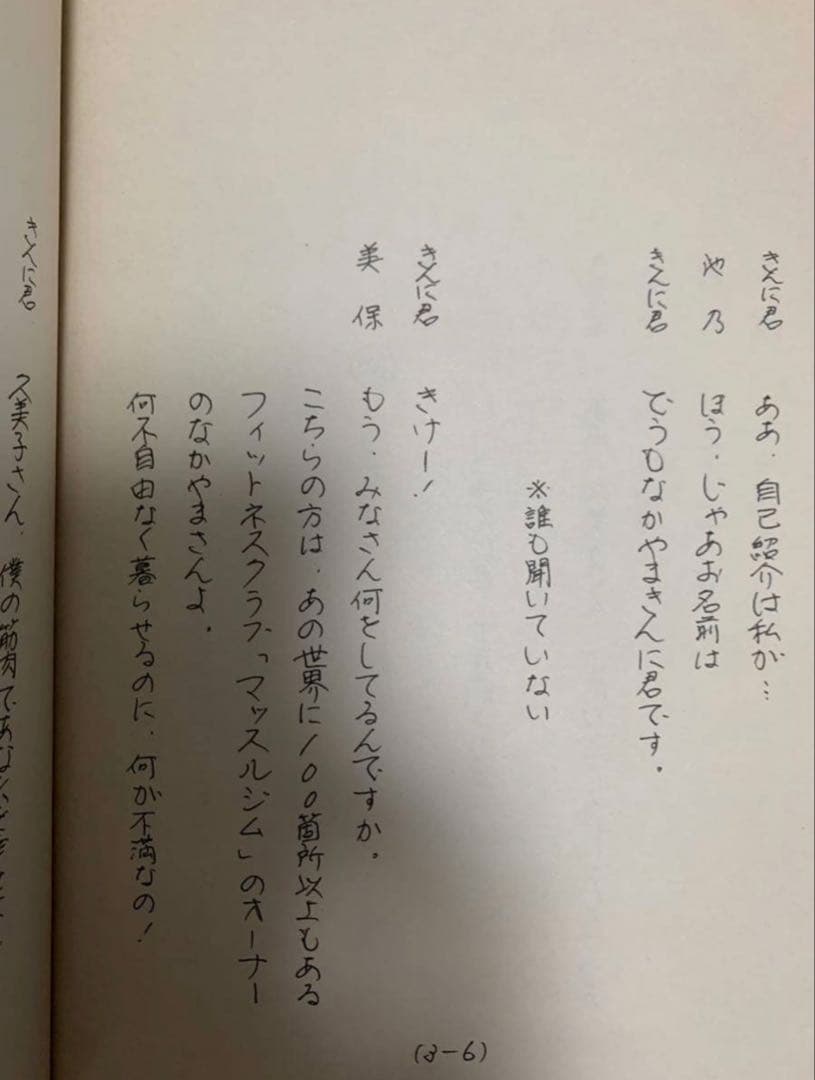 きんに君 ああ、自己紹介は私が…
池乃 ほう、じゃあお名前は
きんに君 どうもなかやまきんに君です。
※誰も聞いていない
きんに君 きけー!
美保 もう、みなさん何をしてるんですか。
こちらの方は、あの世界に100箇所以上もある
フィットネスクラブ「マッスルジム」のオーナー
のなかやまさんよ。
何不自由なく暮らせるのに、何が不満なの!
きんに君 久美子さん、僕の筋肉であな
(3-6)